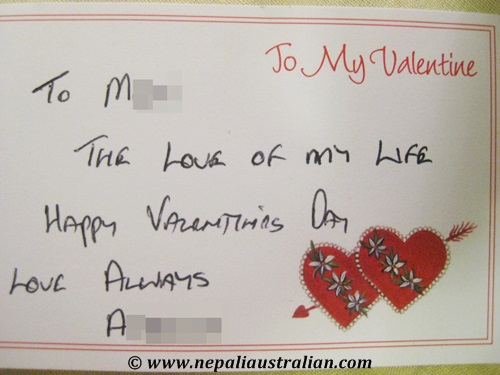 To My Valentine
To M
THE LOVE OF MY LIFE
HAPPY VALENTINES DAY
LOVE ALWAYS
A
© www.nepaliaustralian.com